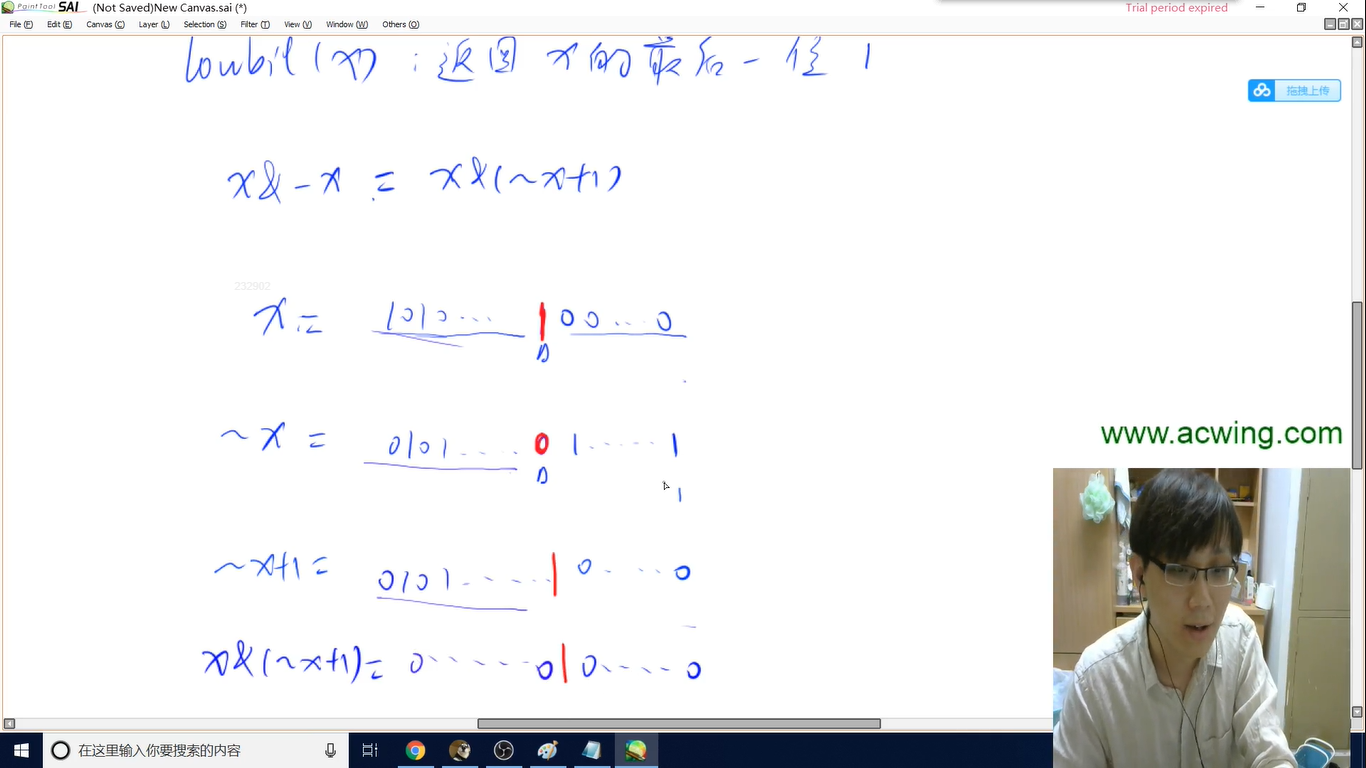 PaintTool SAI (Not Saved)New Canvas.sai (*) Trial period expired
File (F) Edit (E) Canvas (C) Layer (L) Selection (S) Filter (T) View (V) Window (W) Others (O)
lowbit(x) : 返回 x的最后一位1
拖拽上传
x&-x = x&(~x+1)
232902
x= 1010... 1 00...0
~x = 0101.... 0 1.....1
www.acwing.com
1
~x+1= 0101...... 1 0....0
x&(~x+1)= 0......0 1 0.....0
在这里输入你要搜索的内容